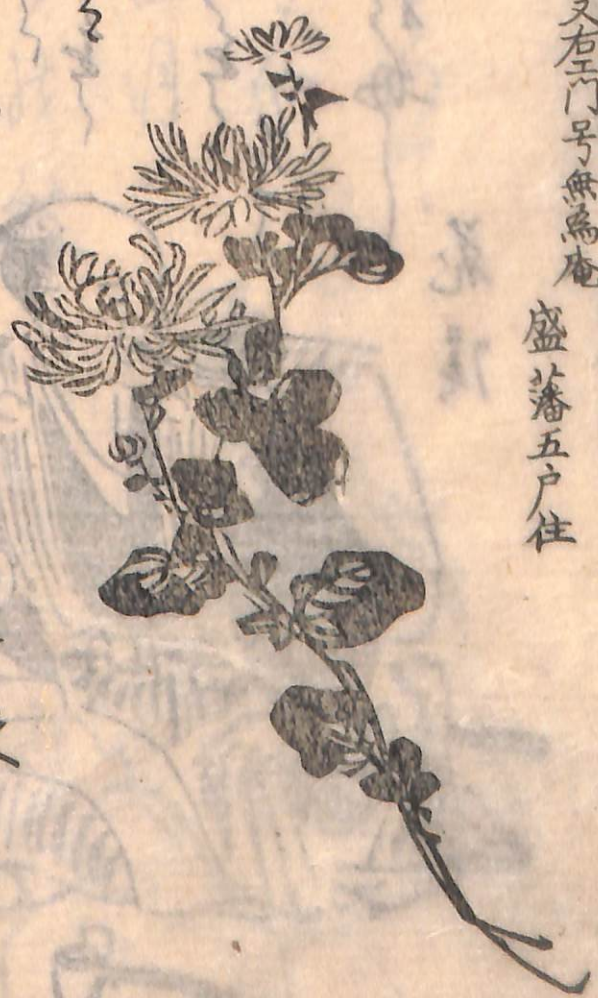 又右エ門号無為庵
盛藩五戸住